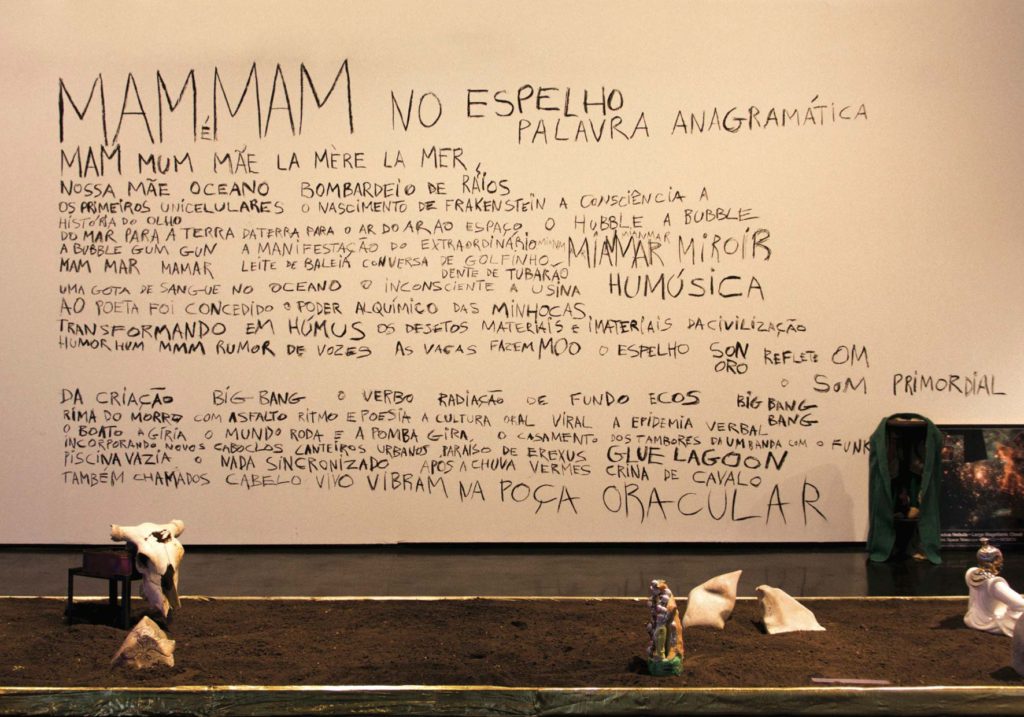 MAM É MAM NO ESPELHO
PALAVRA ANAGRAMÁTICA
MAM MUM MÃE LA MÈRE LA MER
NOSSA MÃE OCEANO BOMBARDEIO DE RAIOS
OS PRIMEIROS UNICELULARES O NASCIMENTO DE FRAKENSTEIN A CONSCIÊNCIA A
HISTÓRIA DO OLHO
DO MAR PARA A TERRA DA TERRA PARA O AR DO AR AO ESPAÇO, O HUBBLE A BUBBLE
A BUBBLE GUM GUN A MANIFESTAÇÃO DO EXTRAORDINÁRIO MIANMAR MIROIR
MIANMAR
MAM MAR MAMAR LEITE DE BALEIA CONVERSA DE GOLFINHO
DENTE DE TUBARÃO
UMA GOTA DE SANGUE NO OCEANO O INCONSCIENTE A USINA HUMÚSICA
AO POETA FOI CONCEDIDO O PODER ALQUÍMICO DAS MINHOCAS
TRANSFORMANDO EM HÚMUS OS DEJETOS MATERIAIS E IMATERIAIS DA CIVILIZAÇÃO
HUMOR HUM MMM RUMOR DE VOZES AS VACAS FAZEM MOO O ESPELHO SON REFLETE OM
ORO
O SOM PRIMORDIAL
DA CRIAÇÃO BIG-BANG O VERBO RADIAÇÃO DE FUNDO ECOS BIG BANG
BANG
RIMA DO MORRO COM ASFALTO RITMO E POESIA A CULTURA ORAL VIRAL A EPIDEMIA VERBAL
O BOATO A GÍRIA O MUNDO RODA E A POMBA GIRA, O CASAMENTO DOS TAMBORES DA UMBANDA COM O FUNK
INCORPORANDO NOVOS CABOCLOS CANTEIROS URBANOS PARAÍSO DE EREXUS GLUE LAGOON
PISCINA VAZIA O NADA SINCRONIZADO APÓS A CHUVA VERMES CRINA DE CAVALO
TAMBÉM CHAMADOS CABELO VIVO VIBRAM NA POÇA ORACULAR